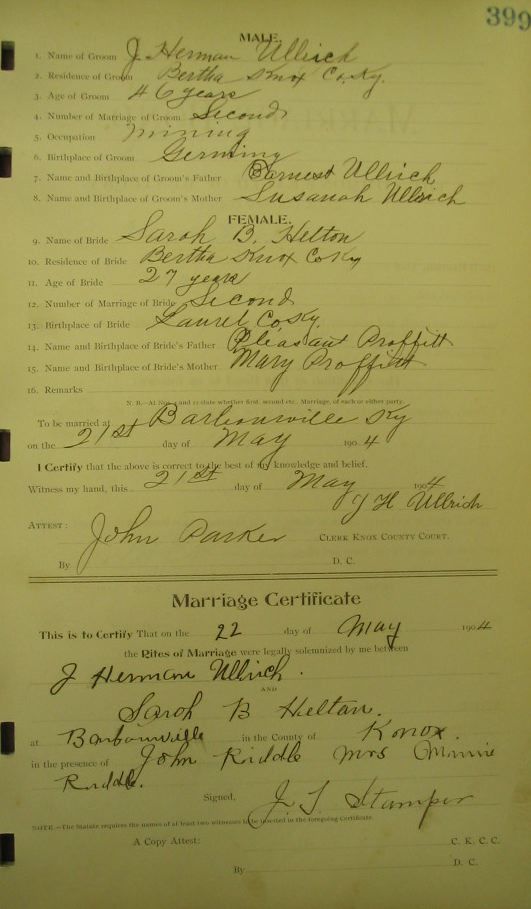 399
MALE.
1. Name of Groom J. Herman Ullrich
2. Residence of Groom Bertha Knox Co. Ky.
3. Age of Groom 46 years
4. Number of Marriage of Groom Second
5. Occupation mining
6. Birthplace of Groom Germing
7. Name and Birthplace of Groom's Father Earnest Ullrich
8. Name and Birthplace of Groom's Mother Susanah Ullrich
FEMALE.
9. Name of Bride Sarah B. Helton
10. Residence of Bride Bertha Knox Co Ky
11. Age of Bride 27 years
12. Number of Marriage of Bride Second
13. Birthplace of Bride Laurel Co. Ky.
14. Name and Birthplace of Bride's Father Pleasant Proffitt
15. Name and Birthplace of Bride's Mother Mary Proffitt
16. Remarks
N. B.—At Nos. 4 and 12 state whether first, second etc., Marriage, of each or either party.
To be married at Barbourville Ky
on the 21st day of May 1904
I Certify that the above is correct to the best of my knowledge and belief.
Witness my hand, this 21st day of May 1904
J H Ullrich
ATTEST: John Parker CLERK KNOX COUNTY COURT.
By D. C.
Marriage Certificate
This is to Certify That on the 22 day of May 1904
the Rites of Marriage were legally solemnized by me between
J Herman Ullrich.
AND
Sarah B Heltan.
at Barbourville in the County of Knox.
in the presence of John Riddle Mrs Minnie
Riddle.
Signed, J. T. Stamper
NOTE.—The Statute requires the names of at least two witnesses to be inserted in the foregoing Certificate.
A Copy Attest: C. K. C. C.
By D. C.